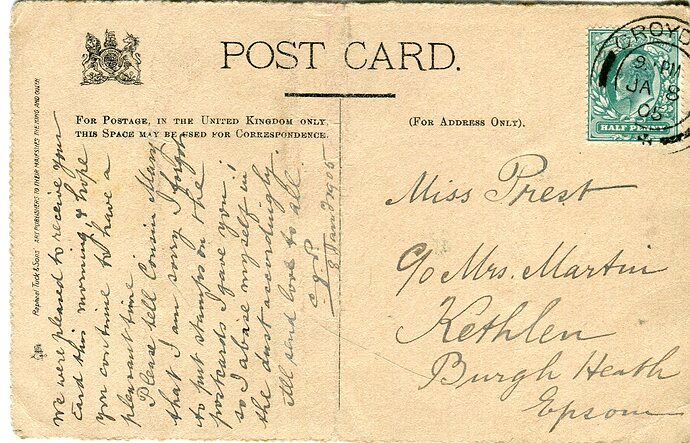 POST CARD.
FOR POSTAGE, IN THE UNITED KINGDOM ONLY,
THIS SPACE MAY BE USED FOR CORRESPONDENCE.
(FOR ADDRESS ONLY).
Raphael Tuck & Sons ART PUBLISHERS TO THEIR MAJESTIES THE KING AND QUEEN
We were pleased to receive your
card this morning, & hope
you continue to have a
pleasant time.
Please tell Cousin Mary
that I am sorry I forgot
to put stamps on the
postcards I gave you,
so I abase myself in
the dust accordingly.
All send love to all.
C. J. P.
8 Jan 1905
Miss Prest
c/o Mrs. Martin
Kethlen
Burgh Heath
Epsom
HALF PENNY
CROYD
9 PM
JA 8
05